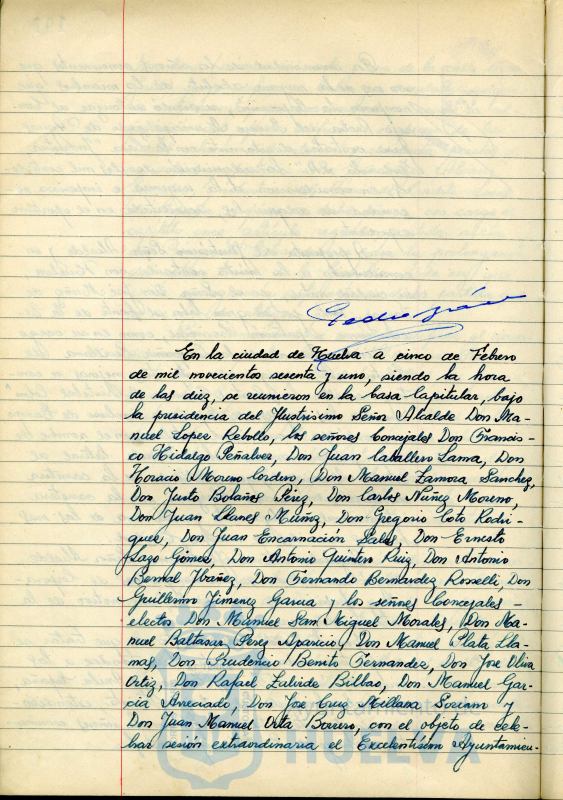 En la ciudad de Huelva a cinco de Febrero
de mil novecientos sesenta y uno, siendo la hora
de las diez, se reunieron en la Casa Capitular, bajo
la presidencia del Ilustrisimo Señor Alcalde Don Ma-
nuel Lopez Rebollo, los señores Concejales Don Francis-
co Hidalgo Peñalver, Don Juan Caballero Lama, Don
Horacio Moreno Cordero, Don Manuel Zamora Sanchez,
Don Justo Bolaños Pérez, Don Carlos Núñez Moreno,
Don Juan Llanes Muñoz, Don Gregorio Coto Rodri-
guez, Don Juan Encarnación Salas, Don Ernesto
Lazo Gómez, Don Antonio Quintero Ruiz, Don Antonio
Bernal Ibáñez, Don Fernando Bernardez Rosselli, Don
Guillermo Jimenez Garcia y los señores Concejales-
electos Don Manuel San Miguel Morales, Don Ma-
nuel Baltasar Pérez Aparicio, Don Manuel Plata Lla-
mas, Don Prudencio Benito Fernandez, Don Jose Oliva
Ortiz, Don Rafael Labirde Bilbao, Don Manuel Gar-
cia Don Jose Cruz y
Don Juan Manuel Orta Borrero, con el objeto de cele-
brar sesión extraordinaria el Excelentísimo Ayuntamien-
HUELVA